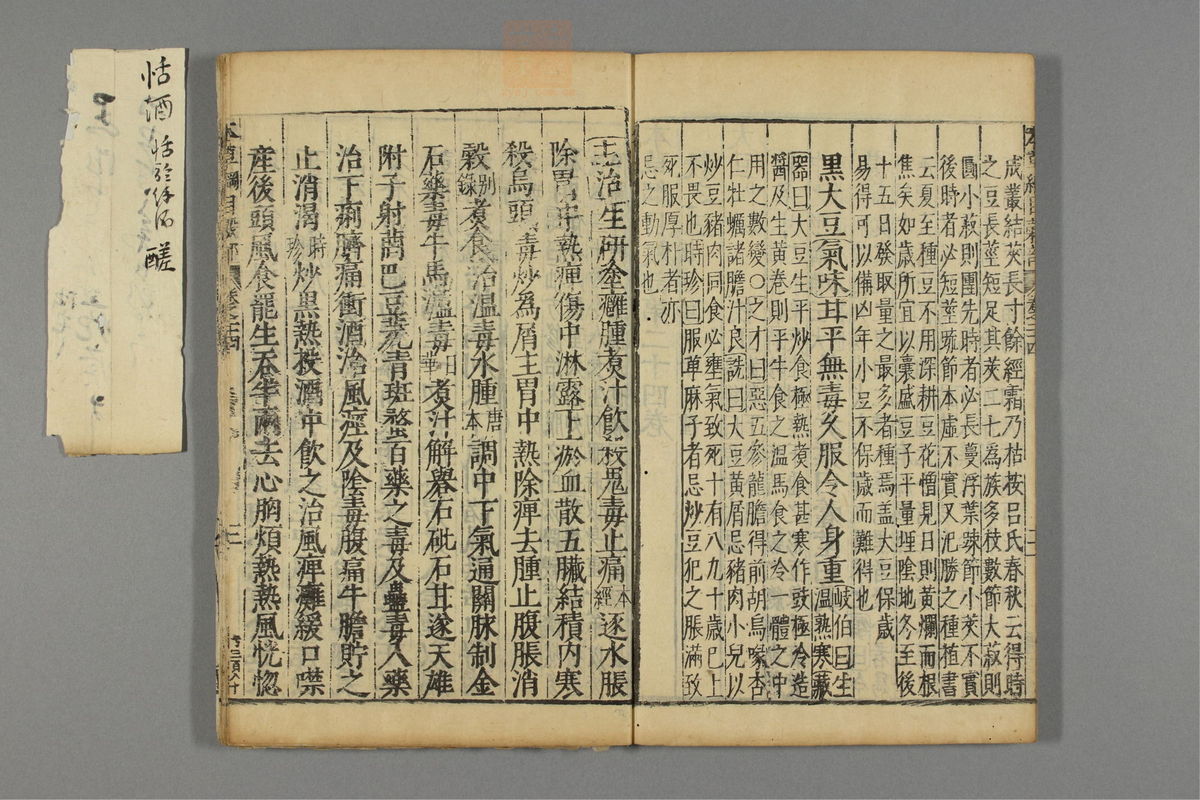 成叢結莢長寸餘經霜乃枯按呂氏春秋云得時
之豆長莖短足其莢二七爲族多枝數節大菽則
圓小菽則團先時者必長蔓浮葉踈節小莢不實
後時者必短莖踈節本虛不實又氾勝之種植書
云夏至種豆不用深耕豆花憎見日則黃爛而根
焦矣知歲所宜以囊盛豆子平量埋陰地冬至後
十五日發取量之最多者種焉蓋大豆保歲
易得可以備凶年小豆不保歲而難得也
黑大豆氣味甘平無毒久服令人身重岐伯曰生溫熟寒藏
器曰大豆生平炒食極熱煮食甚寒作豉極冷造
醬及生黃卷則平牛食之溫馬食之冷一體之中
用之數變〇之才曰惡五參龍膽得前胡烏喙杏
仁牡蠣諸膽汁良詵曰大豆黃屑忌豬肉小兒以
炒豆豬肉同食必壅氣致死十有八九十歲已上
不畏也時珍曰服蓖麻子者忌炒豆犯之脹滿致
死服厚朴者亦
忌之動氣也
主治生研塗癰腫煮汁飲殺鬼毒止痛本經逐水脹
除胃中熱痺傷中淋露下瘀血散五臟結積內寒
殺烏頭毒炒為屑主胃中熱除痺去腫止腹脹消
穀別錄煮食治溫毒水腫唐本調中下氣通關脉制金
石藥毒牛馬溫毒日華煮汁解礜石砒石甘遂天雄
附子射罔巴豆芫青斑蝥百藥之毒及蠱毒入藥
治下痢臍痛衝酒治風痙及陰毒腹痛牛膽貯之
止消渴時珍炒黑熱投酒中飲之治風痺癱緩口噤
產後頭風食罷生吞半兩去心胸煩熱熱風恍惚